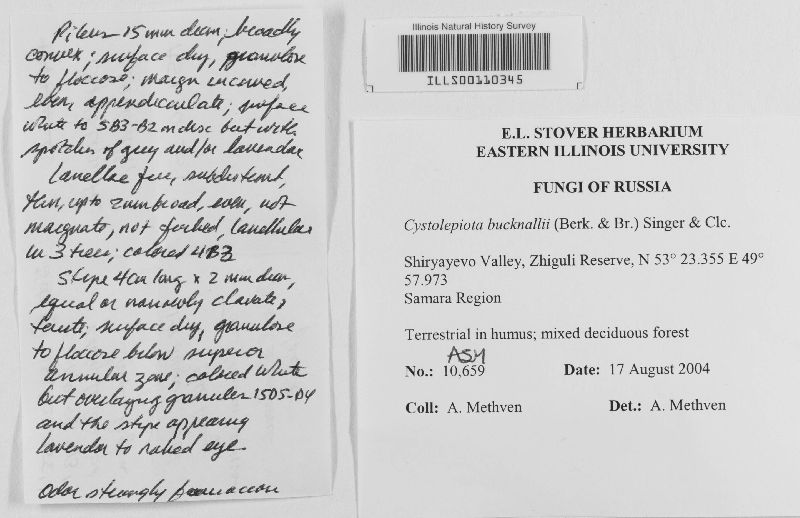 Pileus 15 mm diam, broadly
convex; surface dry, granulose
to floccose; margin incurved,
even, appendiculate; surface
white to 5B3-B2 on disc but with
splotches of grey and/or lavendar
Lamellae free, subdistant,
thin, up to 2 mm broad, even, not
marginate, not forked, lamellulae
in 3 tiers; colored 4B2
Stipe 4 cm long x 2 mm diam,
equal or narrowly clavate,
terete; surface dry, granulose
to floccose below superior
annular zone; colored white
but overlaying granules 15D5-D4
and the stipe appearing
lavendor to naked eye.
Odor strongly
Illinois Natural History Survey
ILLS00110345
E.L. STOVER HERBARIUM
EASTERN ILLINOIS UNIVERSITY
FUNGI OF RUSSIA
Cystolepiota bucknallii (Berk. & Br.) Singer & Clc.
Shiryayevo Valley, Zhiguli Reserve, N 53° 23.355 E 49°
57.973
Samara Region
Terrestrial in humus; mixed deciduous forest
ASM
No.: 10,659 Date: 17 August 2004
Coll: A. Methven Det.: A. Methven